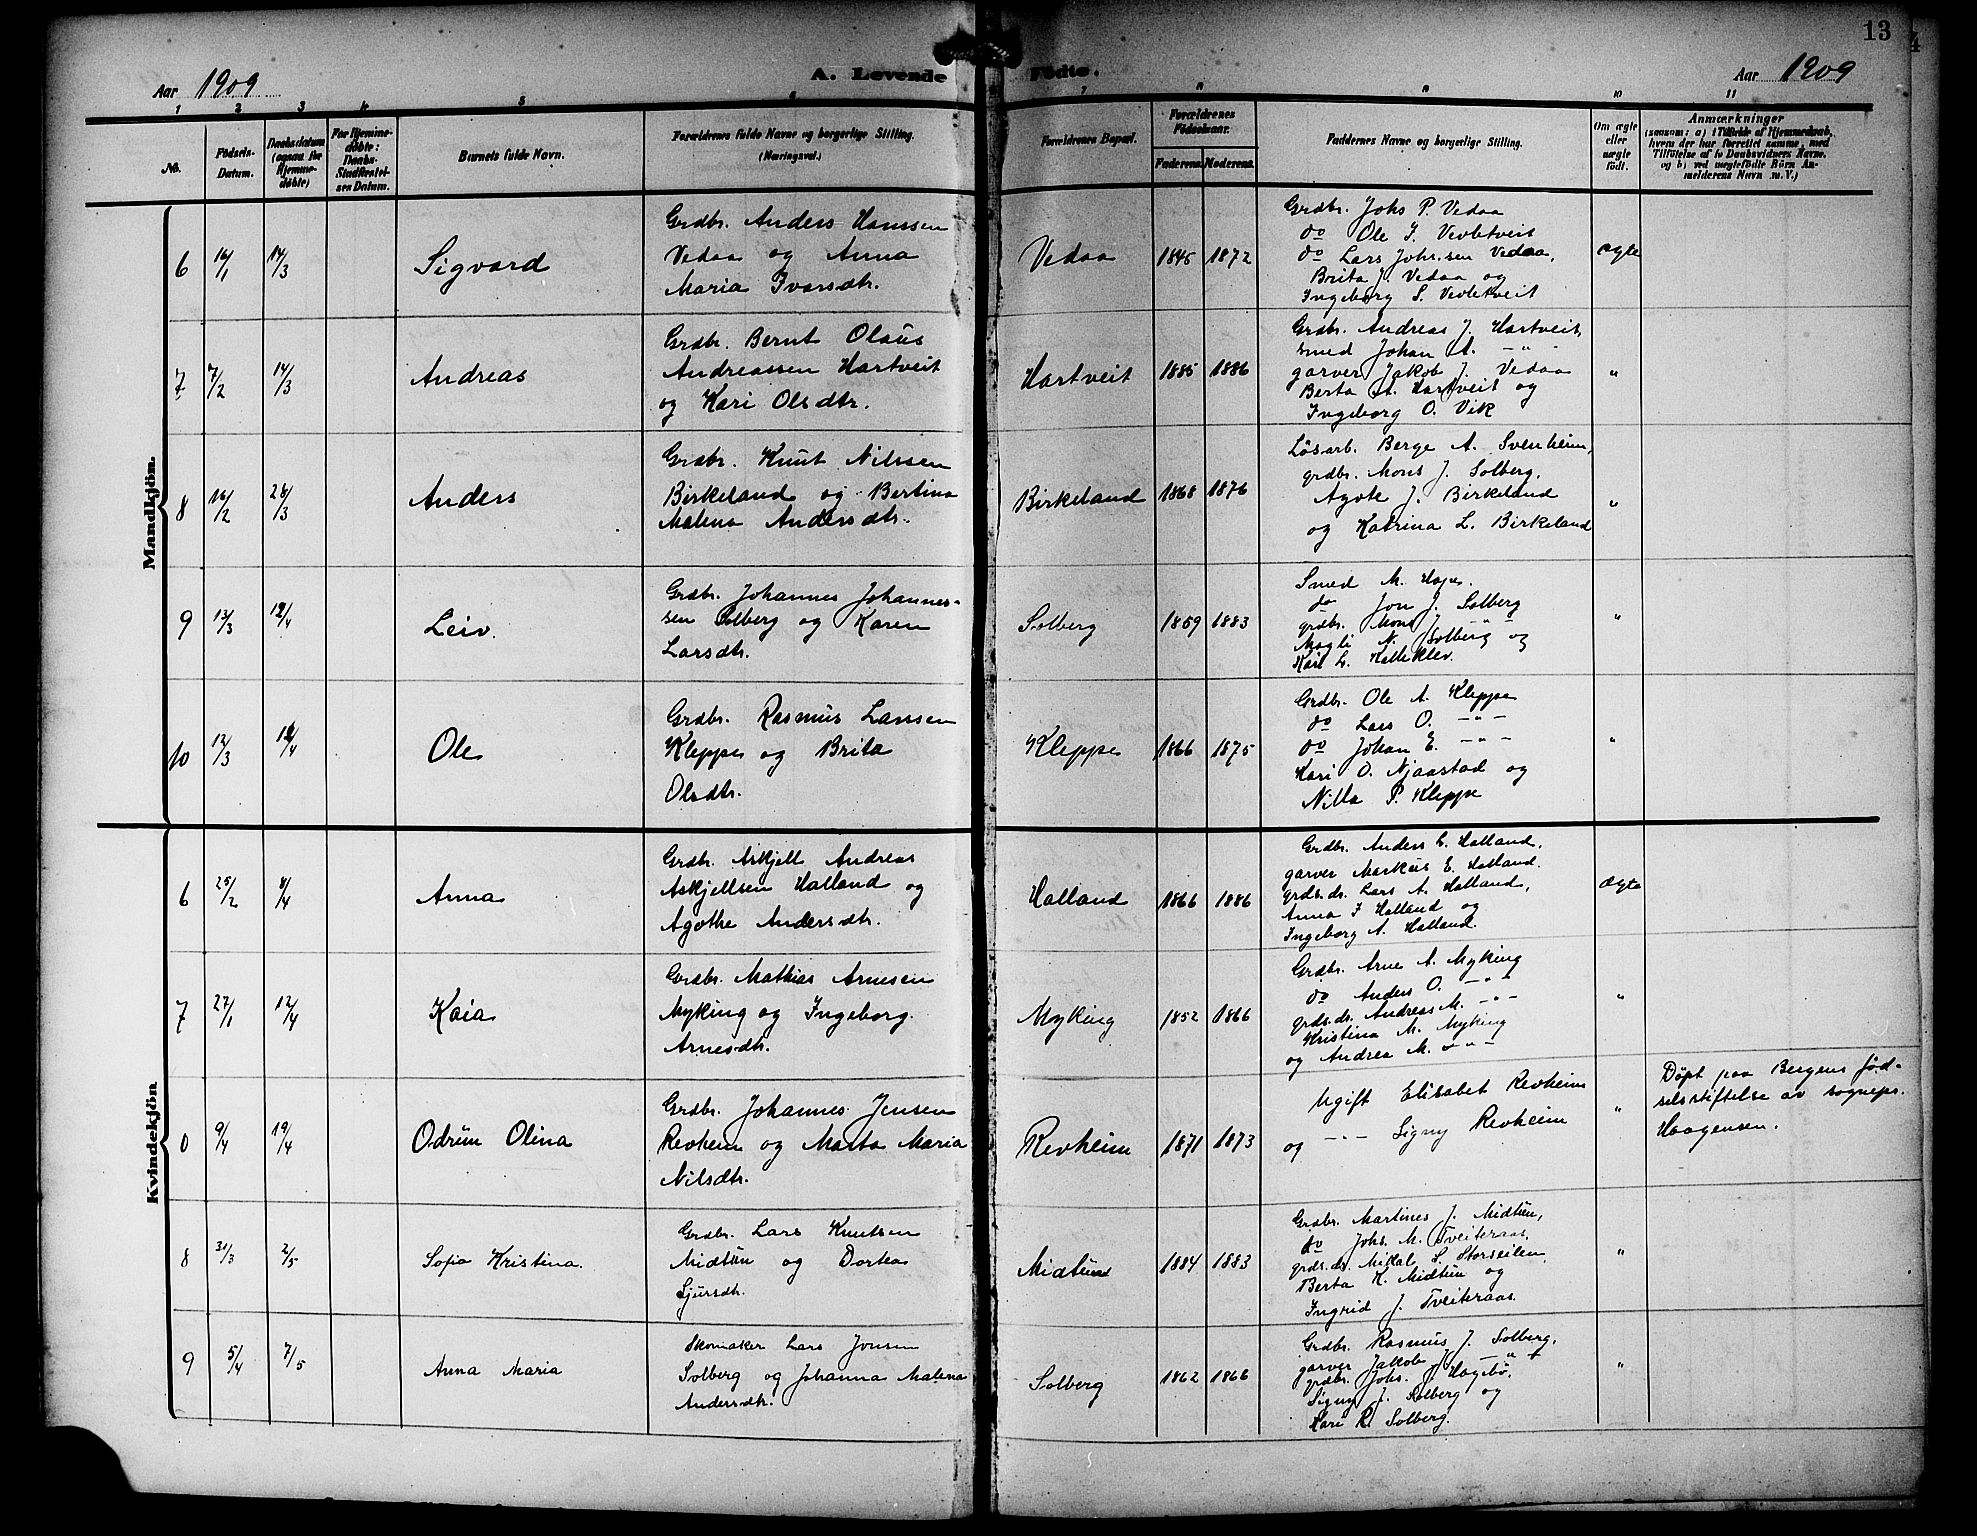 13
Aar 1909
A. Levende Födte.
Aar 1909
1 2 3 4 5 6 7 8 9 10 11
No.
Födsels-Datum.
Daabsdatum (ogsaa for Hjemme-döbte)
For Hjemme-döbte: Daabs-Stadfæstel-ses Datum.
Barnets fulde Navn.
Forældrenes fulde Navne og borgerlige Stilling. (Næringsvei.)
Forældrenes Bopæl.
Forældrenes Födselsaar.
Faderens. Moderens.
Faddernes Navne og borgerlige Stilling.
Om ægte eller uægte födt.
Anmærkninger
(saasom: a) i Tilfælde af Hjemmedaab, hvem der har forrettet samme, med Tilföielse af to Daabsvidners Navne, og b) ved uægtefödte Börn An-melderens Navn m. V.)
Mandkjön.
6 16/1 14/3
Sigvard
Grdbr. Anders Hanssen
Vedaa og Anna
Maria Ivarsdtr.
Vedaa 1845 1872
Grdbr. Johs P. Vedaa
do Ole J. Vevletveit
do Lars Johs.sen Vedaa,
Brita J. Vedaa og
Ingeborg S. Vevletveit
ægte
7 7/2 14/3
Andreas
Grdbr. Bernt Olaus
Andreassen Hartveit
og Kari Olsdtr.
Hartveit 1885 1886
Grdbr. Andreas J. Hartveit,
smed Johan A. -"-
garver Jakob J. Vedaa
Berta A. Hartveit og
Ingeborg O. Vik
"
8 16/2 28/3
Anders
Grdbr. Knut Nilssen
Birkeland og Bertina
Malena Andersdtr.
Birkeland 1868 1876
Løsarb. Berge A. Svenheim,
grdbr. Mons J. Solberg,
Agote J. Birkeland
og Katrina L. Birkeland
"
9 13/3 12/4
Leiv.
Grdbr. Johannes Johannes-
sen Solberg og Karen
Larsdtr.
Solberg 1859 1883
Smed M. Hope.
do Jon J. Solberg
grdbr. Mons J. -"-
Magli N. Solberg og
Kari L. Halleklev.
"
10 12/3 12/4
Ole
Grdbr. Rasmus Larssen
Kleppe og Brita
Olsdtr.
Kleppe 1866 1875
Grdbr. Ole A. Kleppe
do Lars O. -"-
do Johan E. -"-
Kari O. Njaastad og
Nilla P. Kleppe
"
Kvindekjön
6 25/2 8/4
Anna
Grdbr. Askjell Andreas
Askjellsen Halland og
Agothe Andersdtr.
Halland 1866 1886
Grdbr. Anders L. Halland,
garver Markus E. Halland.
grds.dr. Lars A. Halland,
Anna I Halland og
Ingeborg A. Halland.
ægte
7 27/1 12/4
Kaia
Grdbr. Mathias Arnesen
Myking og Ingeborg
Arnesdtr.
Myking 1852 1866
Grdbr. Arne A. Myking
do Anders O. -"-
grds.dr. Andreas M. -"-
Kristina M. Myking
og Andrea M. -"-
"
0 9/4 19/4
Odrun Olina
Grdbr. Johannes Jensen
Revheim og Marta Maria
Nilsdtr.
Revheim 1871 1873
Ugift Elisabet Revheim
og -"- Signy Revheim
"
Döpt paa Bergens föd-
selsstiftelse av sognepr.
Haagensen.
8 31/3 2/5
Sofia Kristina.
Grdbr. Lars Knutsen
Midtun og Dortea
Sjursdtr.
Midtun 1884 1883
Grdbr. Martines J. Midtun,
do Johs. M. Tveiteraas,
grds.dr. Mikal S. Storseilen,
Berta K. Midtun og
Ingrid J. Tveiteraas.
"
9 5/4 7/5
Anna Maria
Skomaker Lars Jonsen
Solberg og Johanna Malena
Andersdtr.
Solberg 1862 1866
Grdbr. Rasmus J. Solberg,
garver Jakob J. -"-
grdbr. Johs. J. Hagebø,
Signy J. Solberg og
Kari R. Solberg.
"